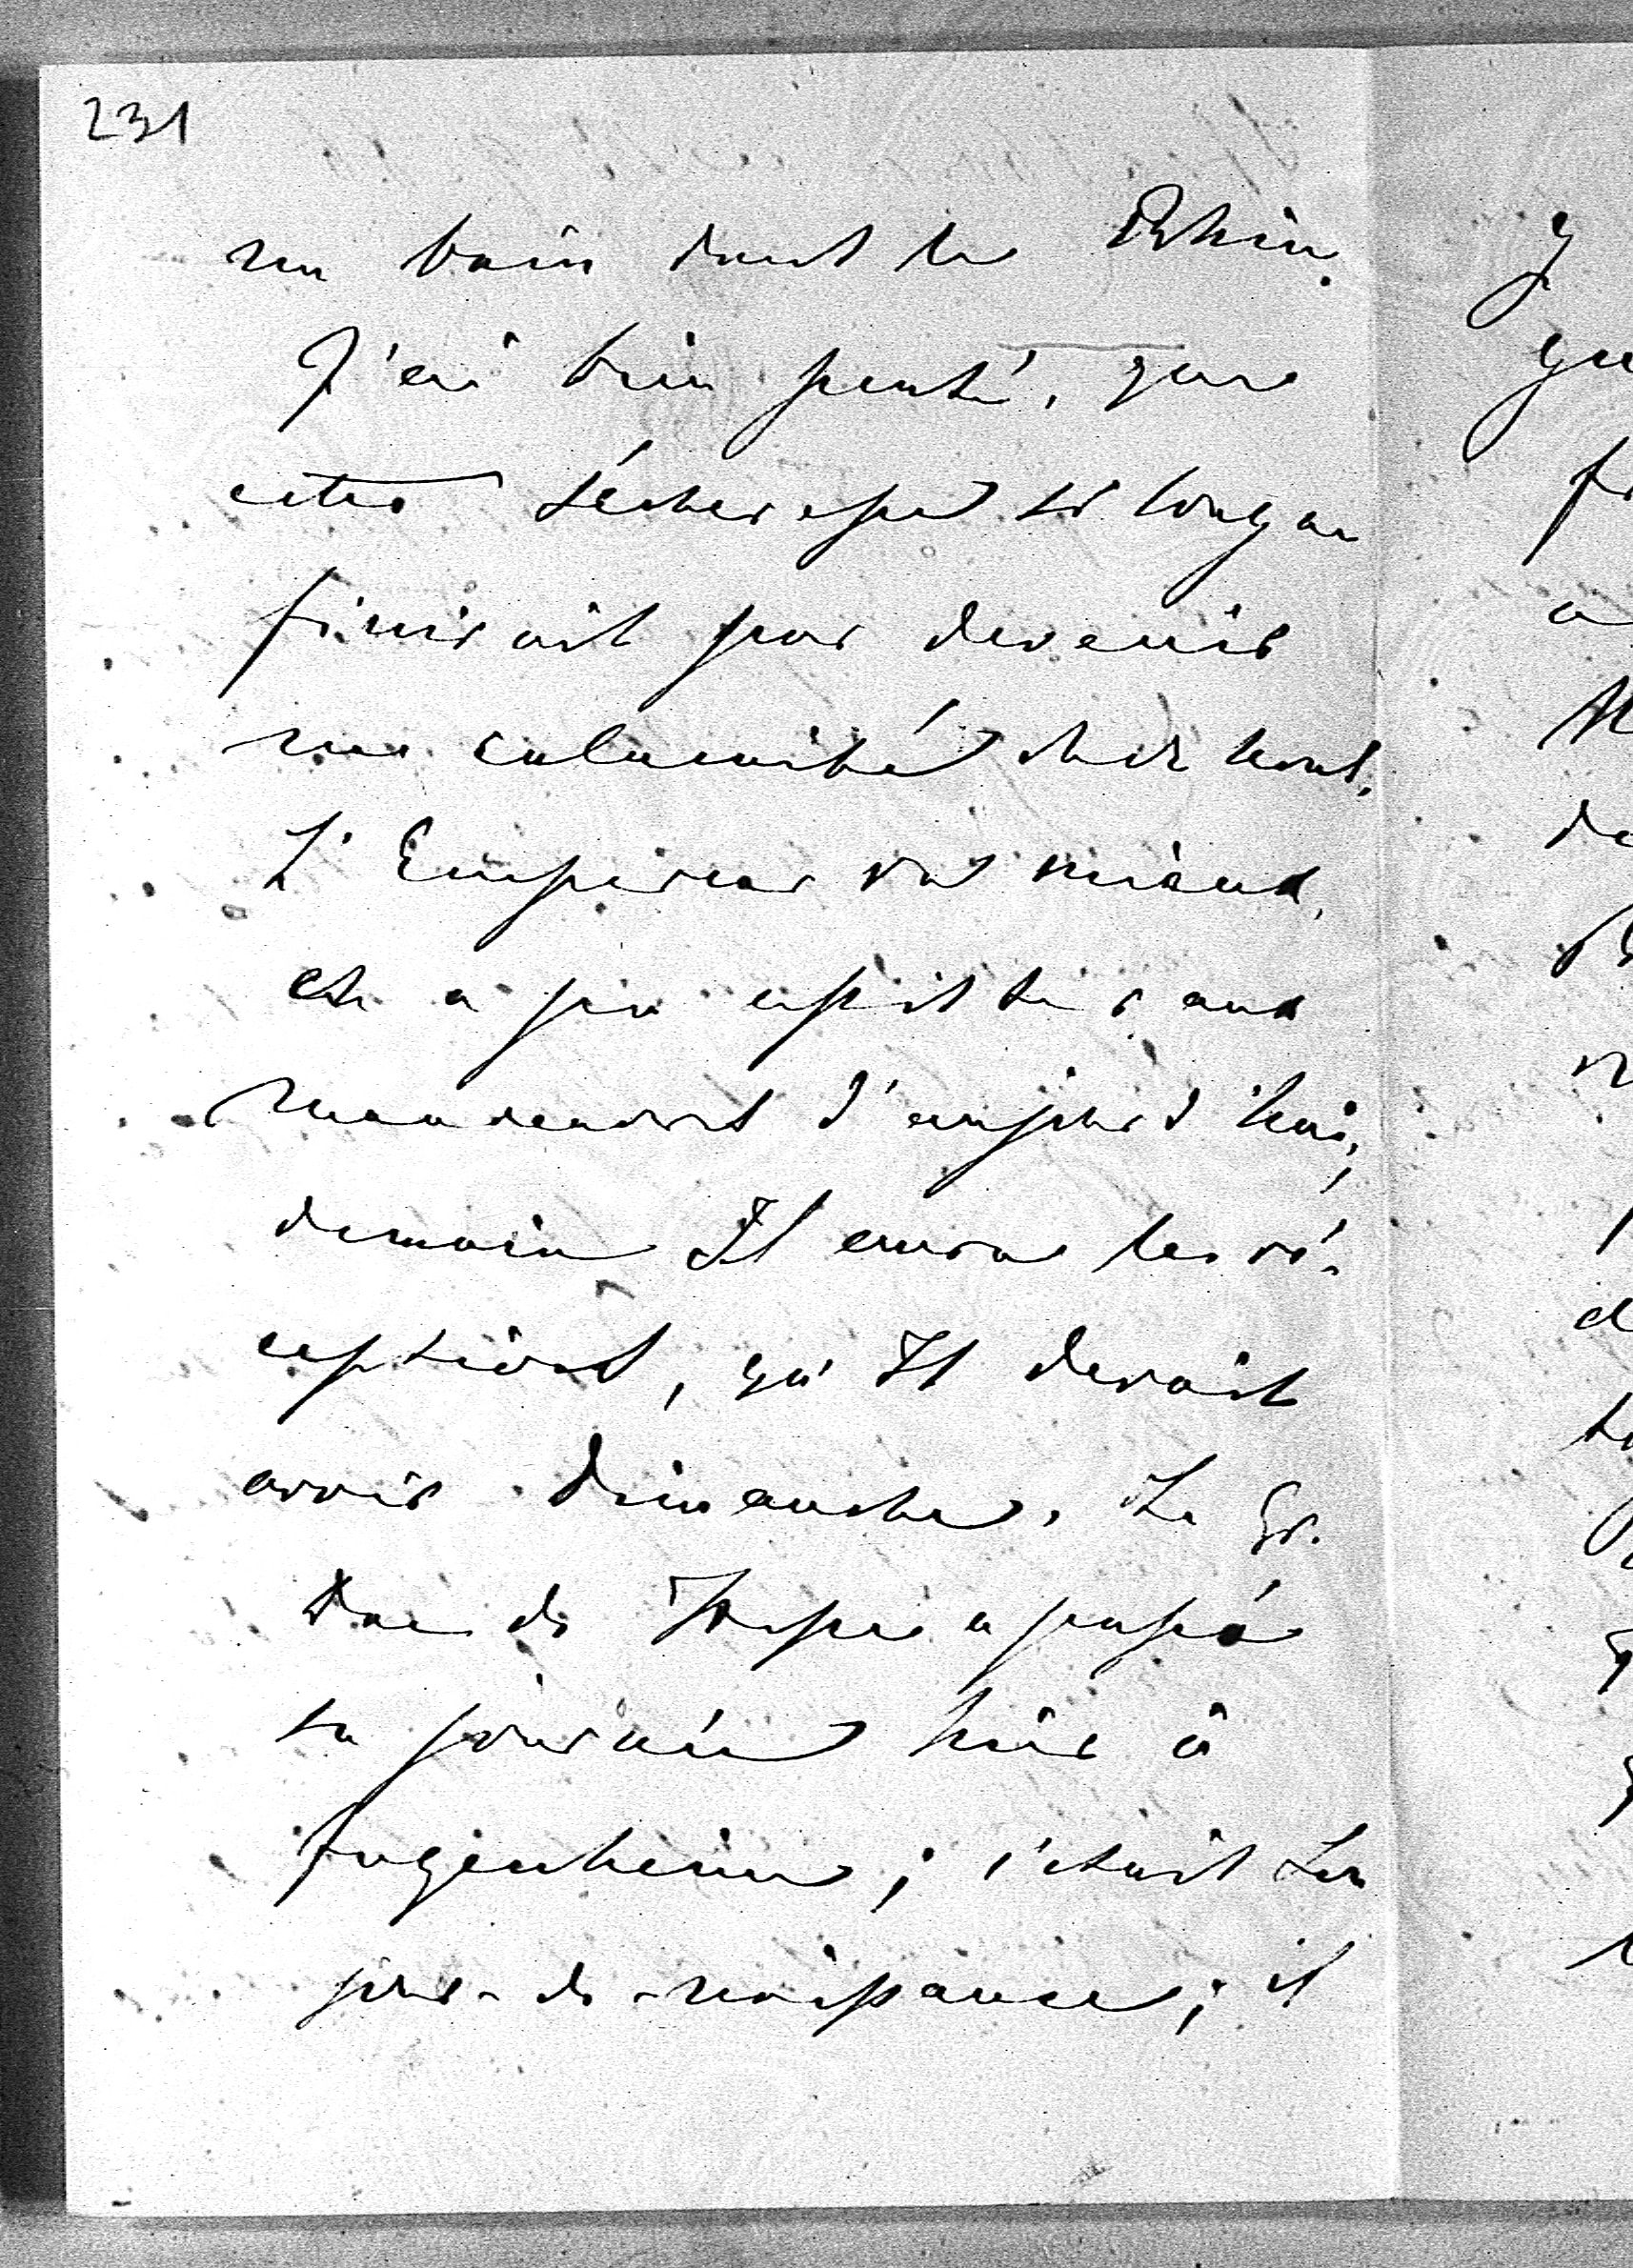 231
un bain dans le Rhin.
J'ai bien pensé, que
cette sécheresse si longue
finirait par devenir
une calamité chez vous.
L'Empereur va mieux,
et a pu assister aux
manoeuvres d'aujourd'hui;
demain Il aura les ré-
ceptions, qu'Il devait
avoir Dimanche. Le Gr.
Duc de Hesse a passé
sa journée hier à
Jugenheim; c'était son
jour-de-naissance; il